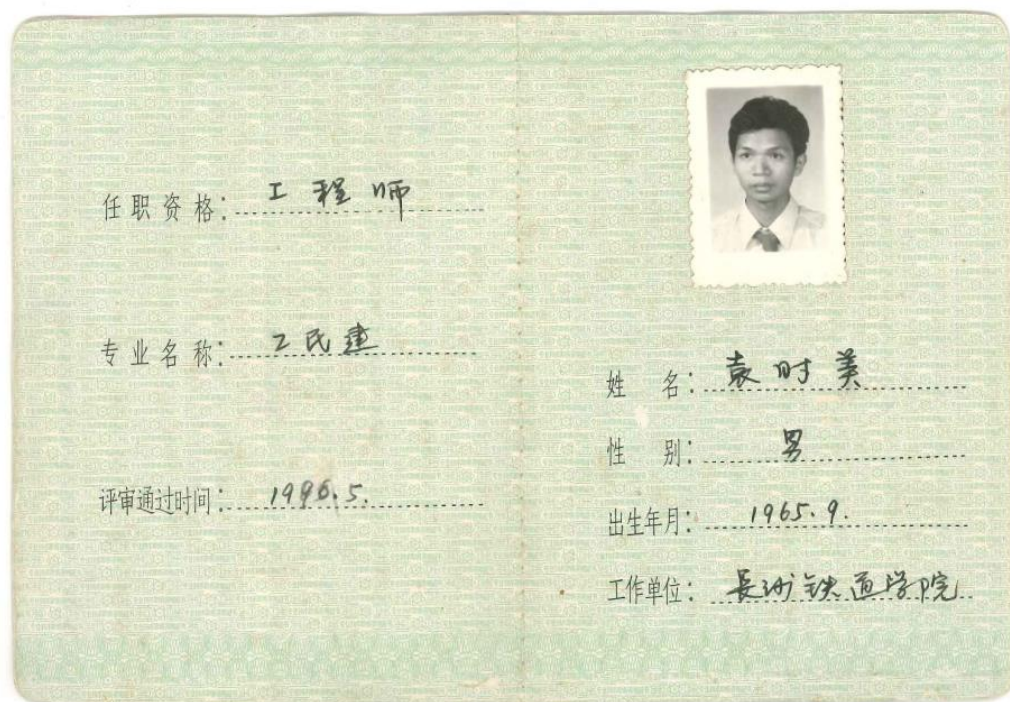 任职资格：工程师
专业名称：工民建
评审通过时间：1996.5.
姓名：袁时美
性别：男
出生年月：1965.9.
工作单位：长沙铁道学院